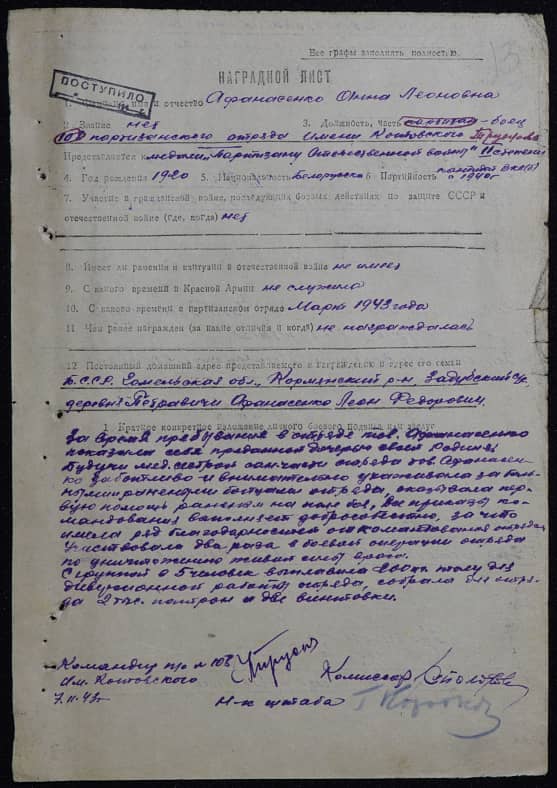 Все графы заполнять полностью.
13
НАГРАДНОЙ ЛИСТ
ПОСТУПИЛО
1. Фамилия, имя и отчество Афанасенко Анна Леоновна
2 Звание нет 3. Должность, часть санитар-боец
108 партизанского отряда имени Котовского
Представляется к медали „Партизану Отечественной войны" II степени
4. Год рождения 1920 5. Национальность Белоруска 6 Партийность кандидат ВКП(б)
с 1940г
7. Участие в гражданской войне, последующих боевых действиях по защите СССР и
отечественной войне (где, когда) нет
8. Имеет ли ранения и контузии в отечественной войне не имеет
9. С какого времени в Красной Армии не служила
10. С какого времени в партизанском отряде Март 1943 года
11 Чем ранее награжден (за какие отличия и когда) не награждалась
12. Постоянный домашний адрес представляемого к награждению и адрес его семьи
БССР, Гомельская обл., Кормянский р-н,
деревня Петравичи Афанасенко Леон Федорович
1 Краткое конкретное изложение личного боевого подвига или заслуг
За время пребывания в отряде тов. Афанасенко
показала себя преданной дочерью своей Родины.
Будучи мед. сестрой санчасти отряда тов. Афанасен-
ко заботливо и внимательно ухаживала за боль-
ными и ранеными бойцами отряда, оказывала пер-
вую помощь раненым на поле боя, все приказы ко-
мандования выполняет добросовестно, за что
имела ряд благодарностей от командования отряда.
Участвовала два раза в боевой операции отряда
по уничтожению живой силы врага.
С группой в 5 человек толу для
диверсионной работы отряда, собрала для отря-
да 2 тыс. патрон и две винтовки.
Командир п/о №108
им. Котовского
7.11.43г
Комиссар
Н-к штаба